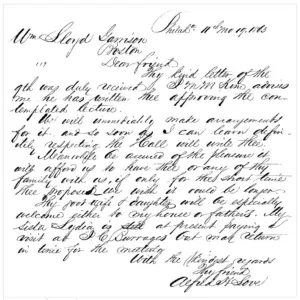 Philada 11th mo 19, 1863
Wm Lloyd Garrison
Boston
Dear friend
Thy kind letter of the
9th was duly received & J M M Kim advises
me he has written thee approving the con-
templated lecture.
We will immediately make arrangements
for it and so soon as I can learn defin-
itely respecting the Hall will write thee.
Meanwhile be assured of the pleasure it
will afford us to have thee or any of thy
family with us, if only for the short time
thee proposed we wish it could be longer
Thy good wife & daughter will be especially
welcome either to my house or fathers. My
sister Lydia is at present paying a
visit at but may return
in time for the meeting
With the kindest regards
Thy friend
Alfred H Love